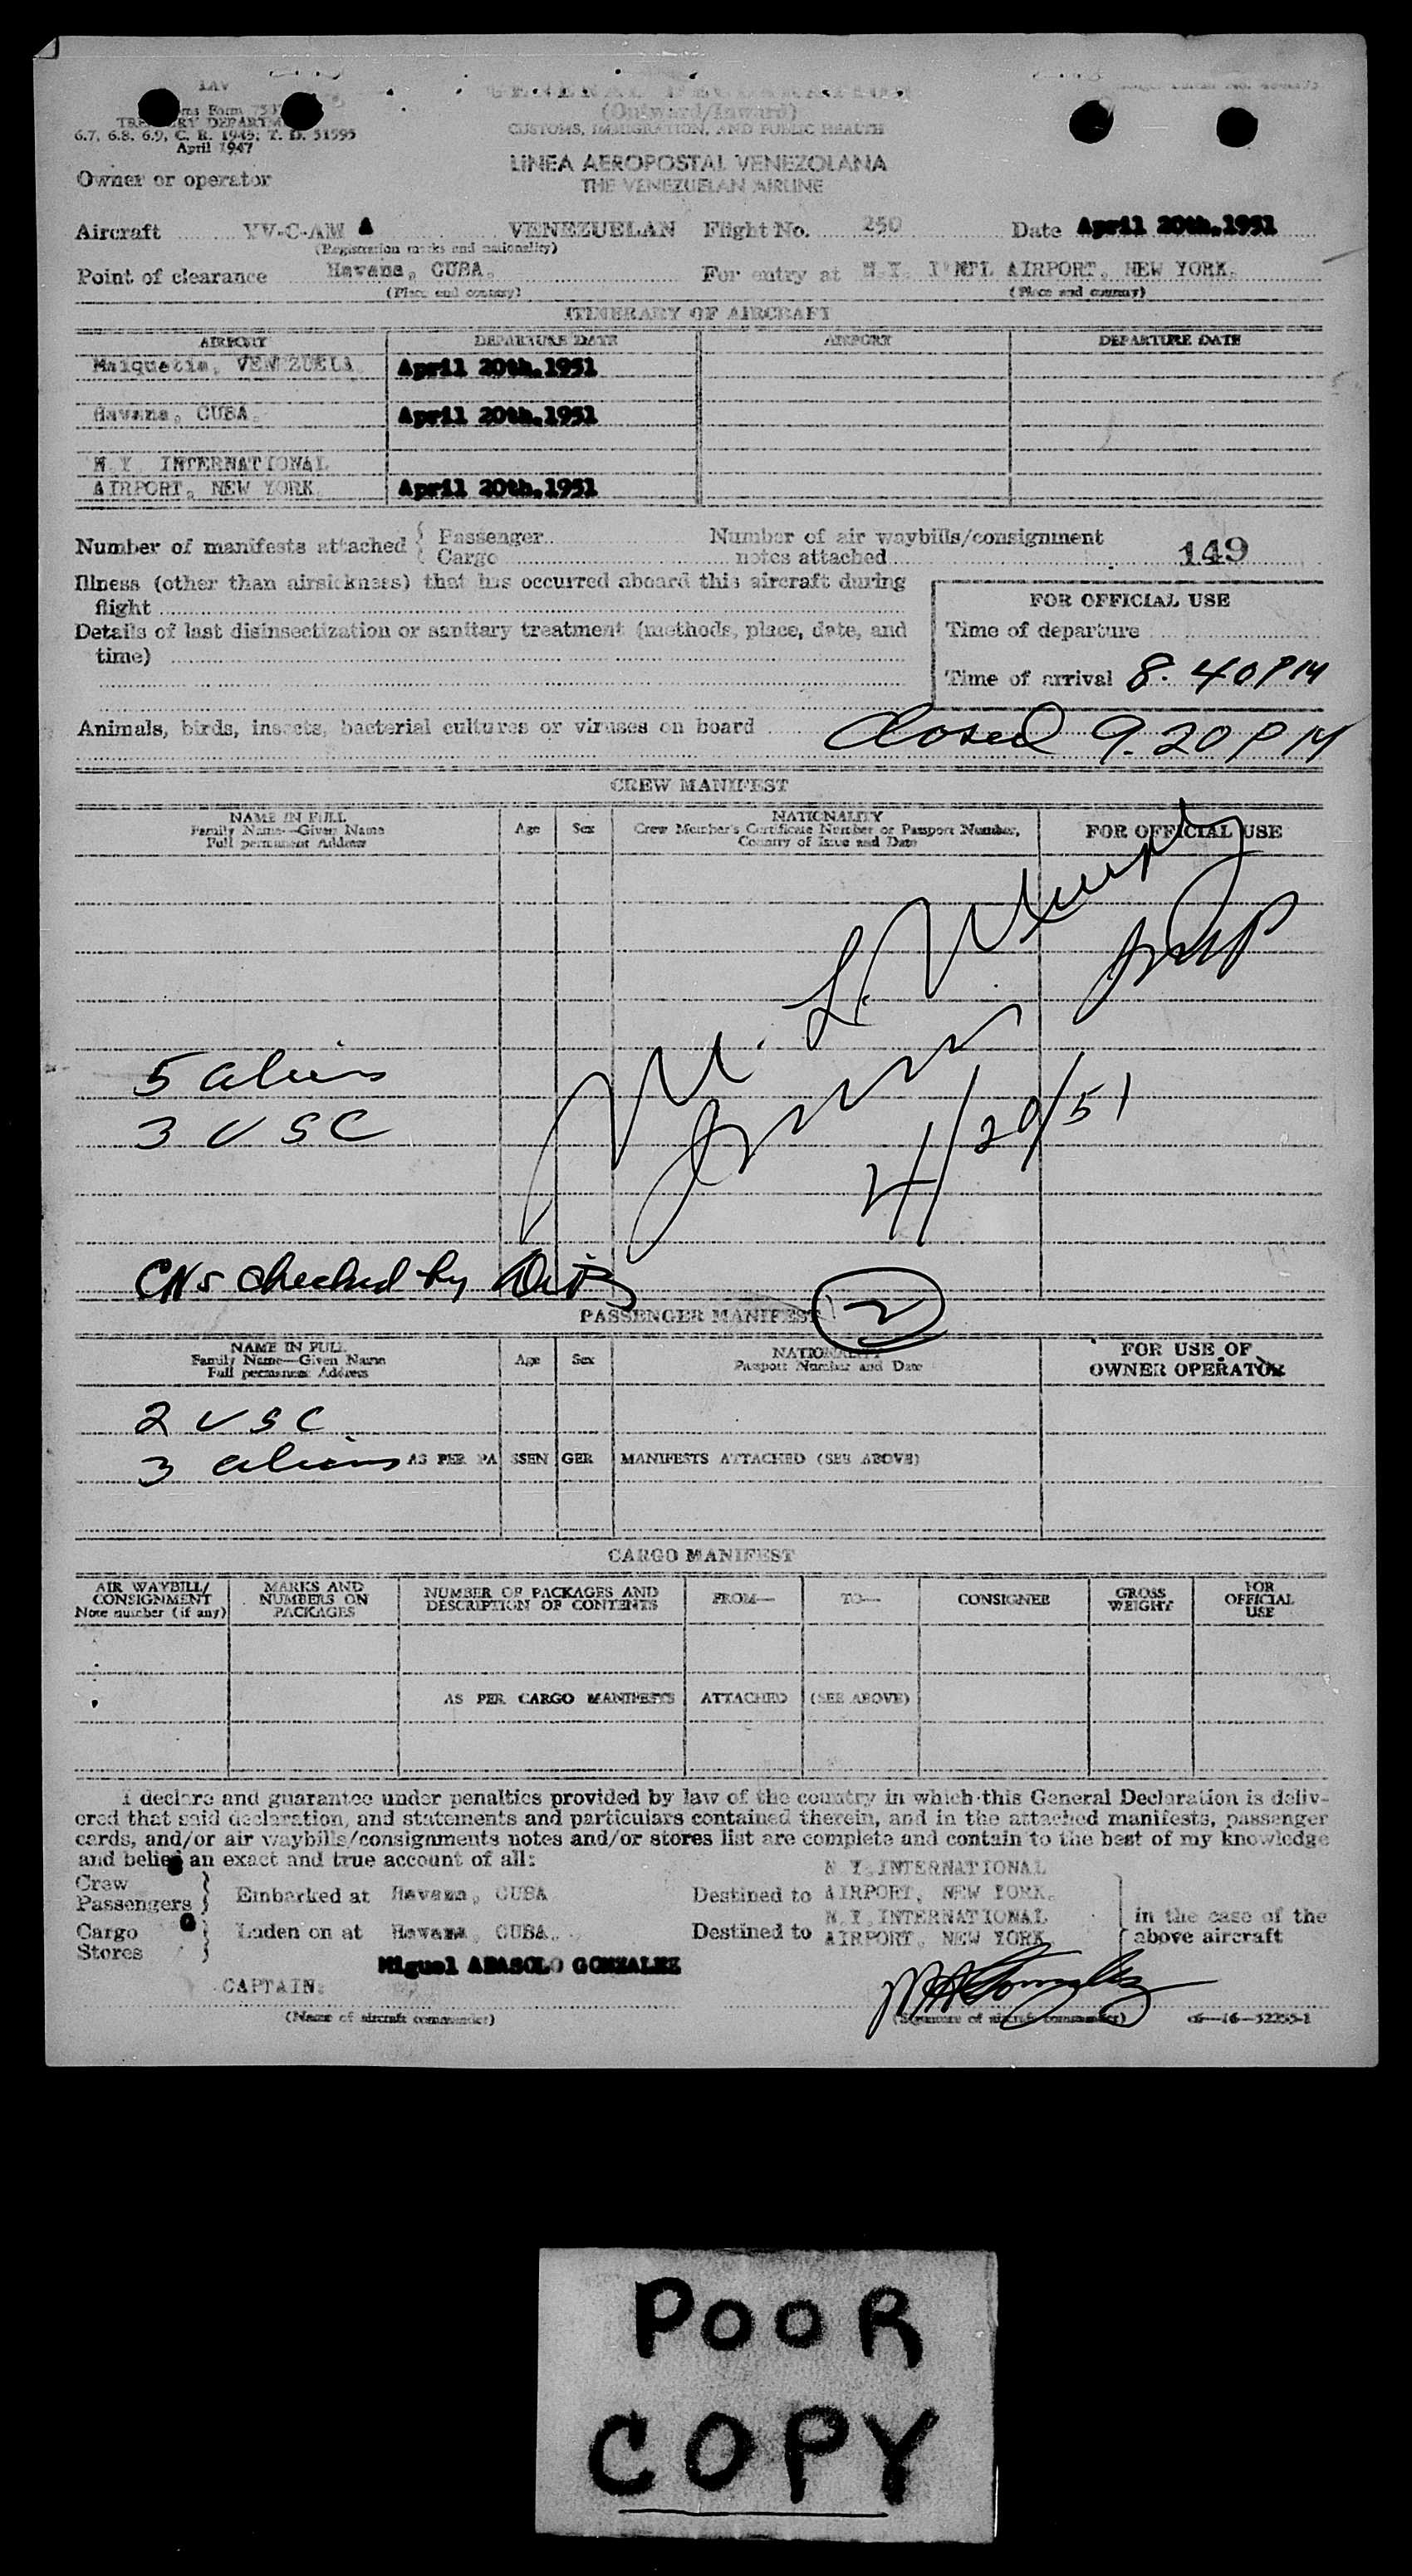 LAV
TREASURY DEPARTMENT
6.7, 6.8, 6.9, C. R. 1943; T. D. 51595
April 1947
GENERAL DECLARATION
(Outward/Inward)
CUSTOMS, IMMIGRATION, AND PUBLIC HEALTH
LINEA AEROPOSTAL VENEZOLANA
THE VENEZUELAN AIRLINE
Owner or operator
Aircraft YV-C-AM A VENEZUELAN Flight No. 250 Date April 20th.1951
(Registration marks and nationality)
Point of clearance Havana, CUBA. For entry at N.Y. I'NTL AIRPORT, NEW YORK.
(Place and country) (Place and country)
ITINERARY OF AIRCRAFT
AIRPORT DEPARTURE DATE AIRPORT DEPARTURE DATE
Maiquetia, VENEZUELA April 20th.1951
Havana, CUBA. April 20th.1951
N.Y. INTERNATIONAL
AIRPORT, NEW YORK April 20th.1951
Number of manifests attached { Passenger Number of air waybills/consignment
Cargo notes attached 149
Illness (other than airsickness) that has occurred aboard this aircraft during
flight
FOR OFFICIAL USE
Details of last disinsectization or sanitary treatment (methods, place, date, and
time)
Time of departure
Time of arrival 8.40 PM
Animals, birds, insects, bacterial cultures or viruses on board
Closed 9.20 PM
CREW MANIFEST
NAME IN FULL Age Sex NATIONALITY FOR OFFICIAL USE
Family Name—Given Name Crew Member's Certificate Number or Passport Number,
Full permanent Address Country of Issue and Date
5 aliens
3 USC
4/20/51
CNs checked by
PASSENGER MANIFEST 2
NAME IN FULL Age Sex NATIONALITY FOR USE OF
Family Name—Given Name Passport Number and Date OWNER OPERATOR
Full permanent Address
2 USC
3 aliens AS PER PASSENGER MANIFESTS ATTACHED (SEE ABOVE)
CARGO MANIFEST
AIR WAYBILL/ MARKS AND NUMBER OF PACKAGES AND FROM— TO— CONSIGNEE GROSS FOR
CONSIGNMENT NUMBERS ON DESCRIPTION OF CONTENTS WEIGHT OFFICIAL
Note number (if any) PACKAGES USE
AS PER CARGO MANIFESTS ATTACHED (SEE ABOVE)
I declare and guarantee under penalties provided by law of the country in which this General Declaration is deliv-
ered that said declaration, and statements and particulars contained therein, and in the attached manifests, passenger
cards, and/or air waybills/consignments notes and/or stores list are complete and contain to the best of my knowledge
and belief an exact and true account of all:
Crew N Y INTERNATIONAL
Passengers } Embarked at Havana, CUBA Destined to AIRPORT, NEW YORK.
Cargo } Laden on at Havana, CUBA. Destined to N.Y INTERNATIONAL in the case of the
Stores AIRPORT, NEW YORK. above aircraft
Miguel ABASOLO GONZALEZ
CAPTAIN:
(Name of aircraft commander) (Signature of aircraft commander)
POOR
COPY